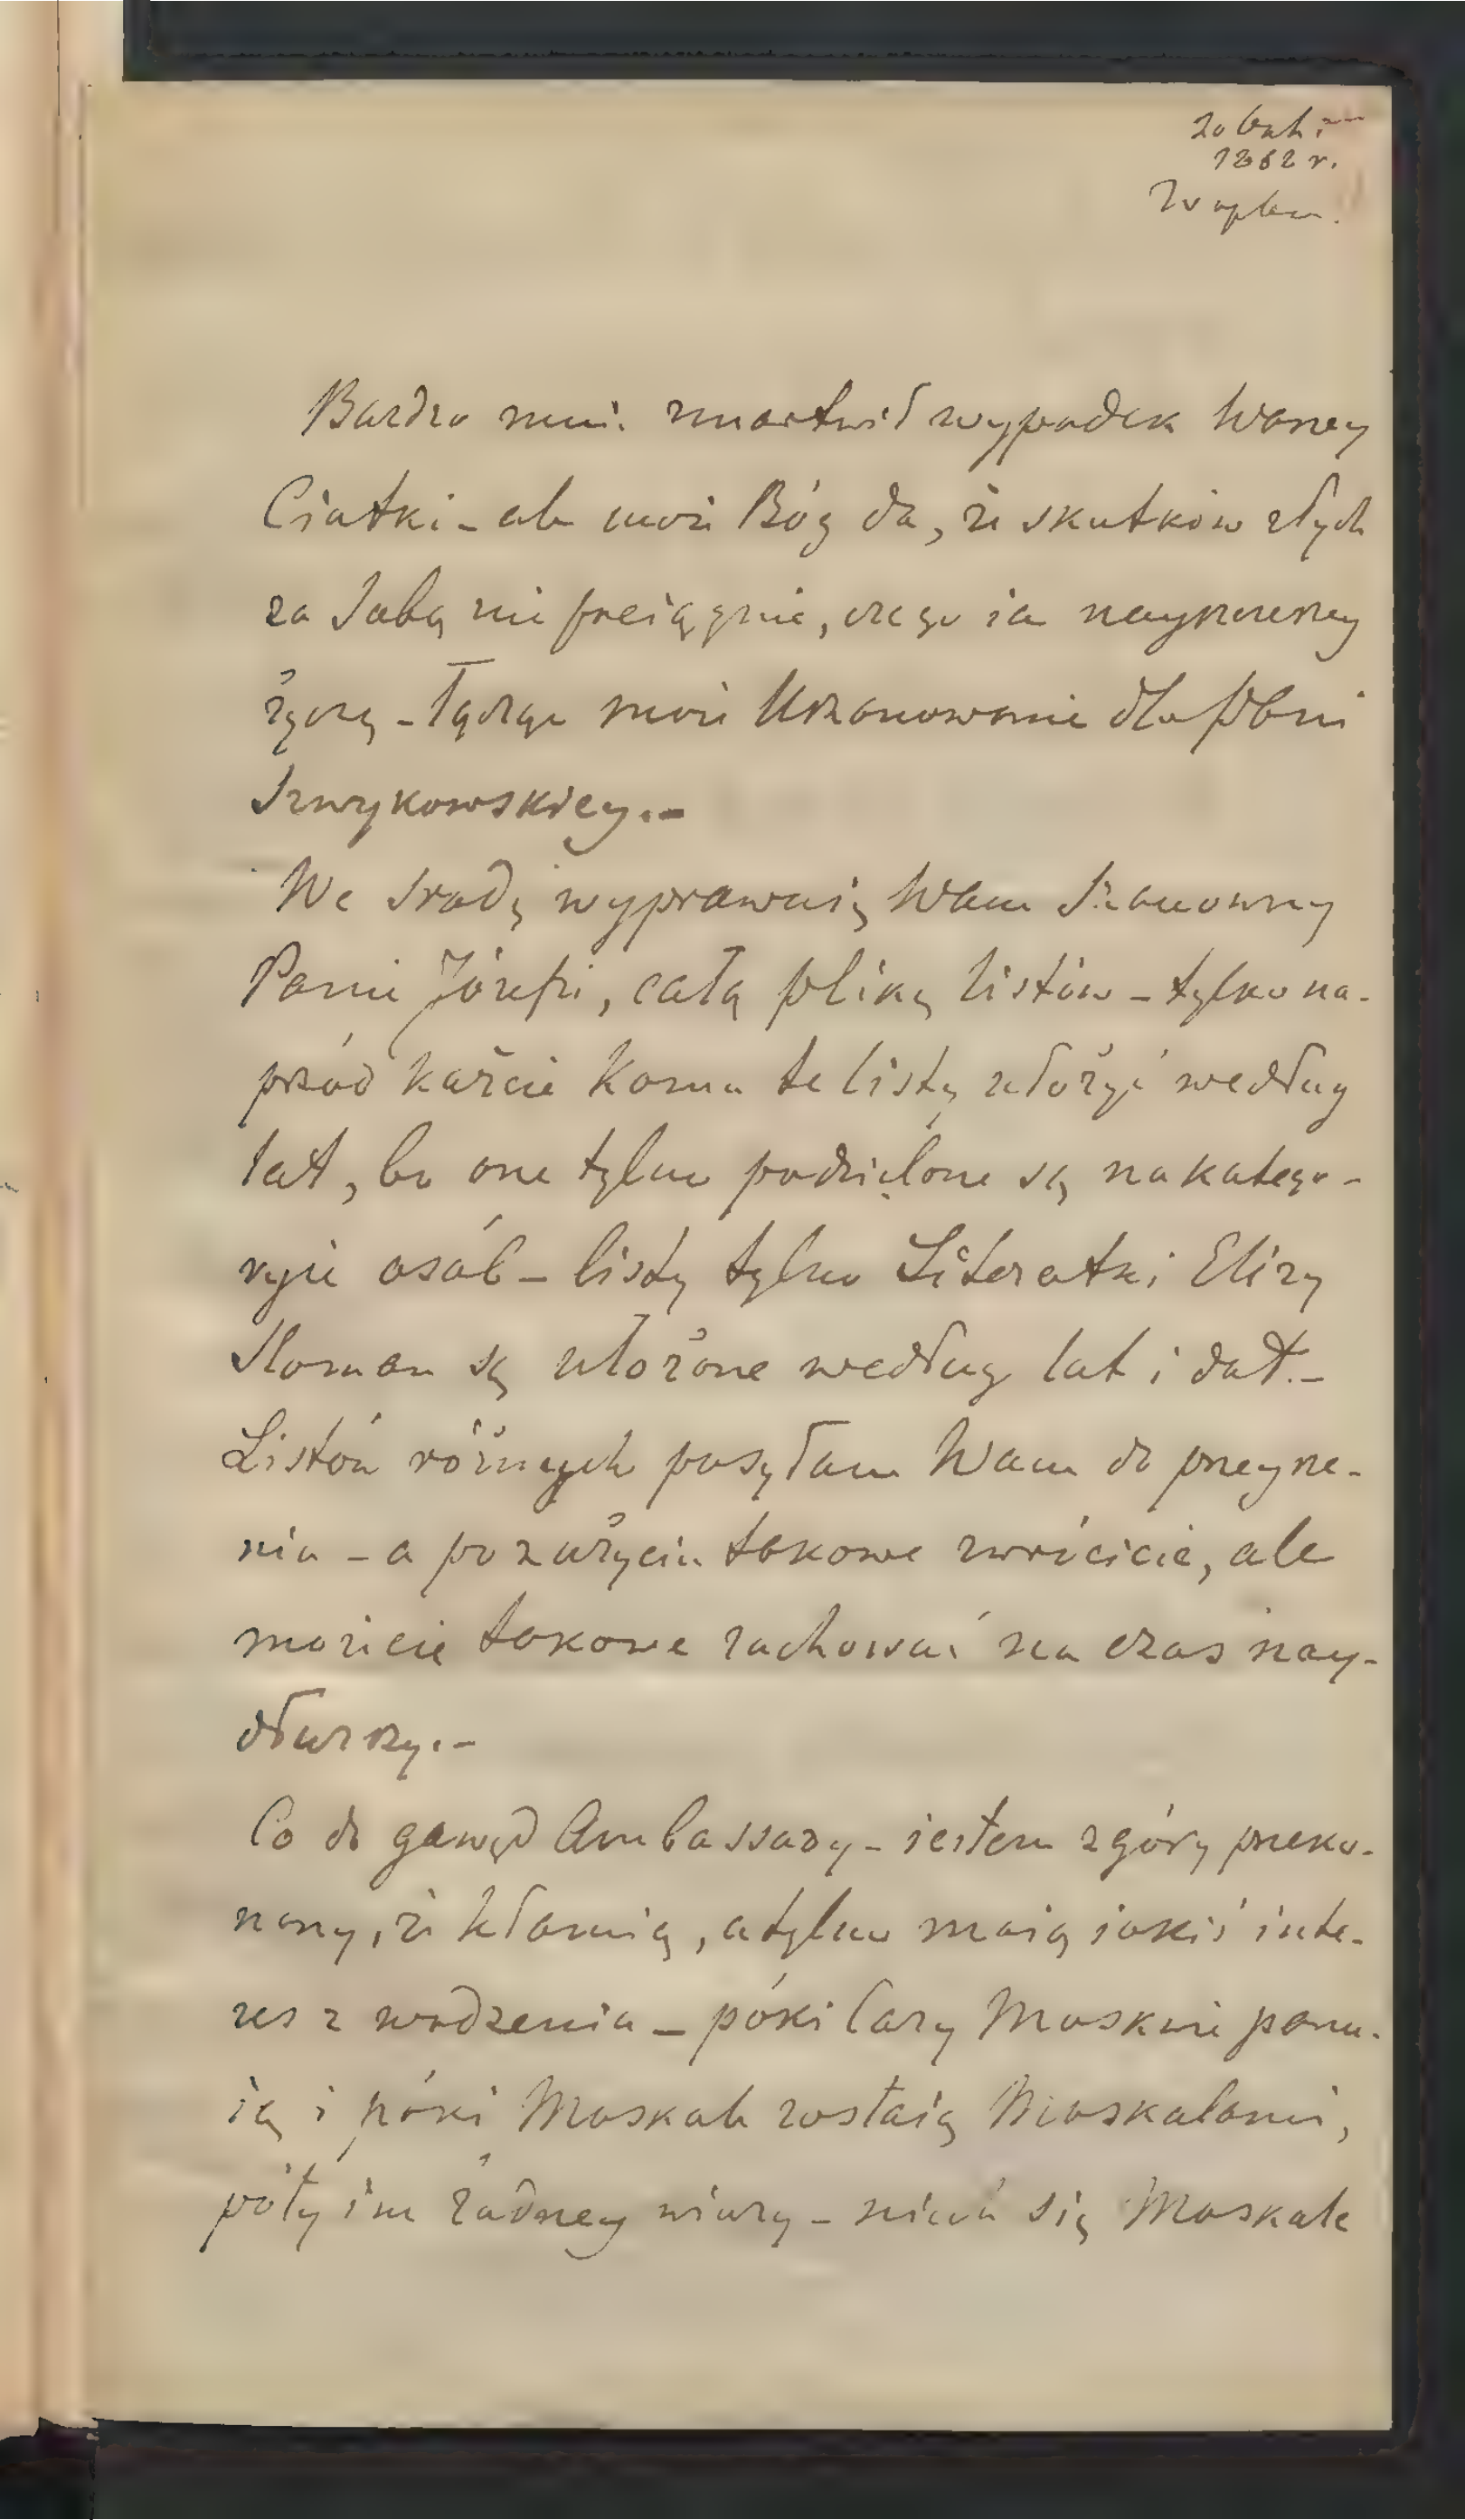 1862 r.
Bardzo mnie zmartwił wypadek Waszey
Ciotki – ale może Bóg da, że skutków złych
za Sobą nie pociągnie, czego ia nayszczerzey
życzę – łączę moie Uszanowanie dla
Szwykowskiey. –
We Srodę wyprawuię Wam Szanowny
Panie Józefie, całą plikę listów – tylko na-
przód każcie Komu te listy ułożyć według
lat, bo one tylko podzielone są na katego-
ryie osób – listy tylko Literatki Elizy
Sloman są ułożone według lat i dat. –
Listów różnych posyłam Wam do przeyrze-
nia – a po zużyciu takowe zwrócicie, ale
możecie takowe zachować na czas nay-
dłuższy. –
Co do gawęd Ambassady – iestem z góry przeko-
nany, że kłamią, a tylko maią iakiś inte-
res z wodzenia – póki Cary Moskwie panu-
ią i póki Moskale zostaią Moskalami,
póty im żadney wiary – niech się Moskale